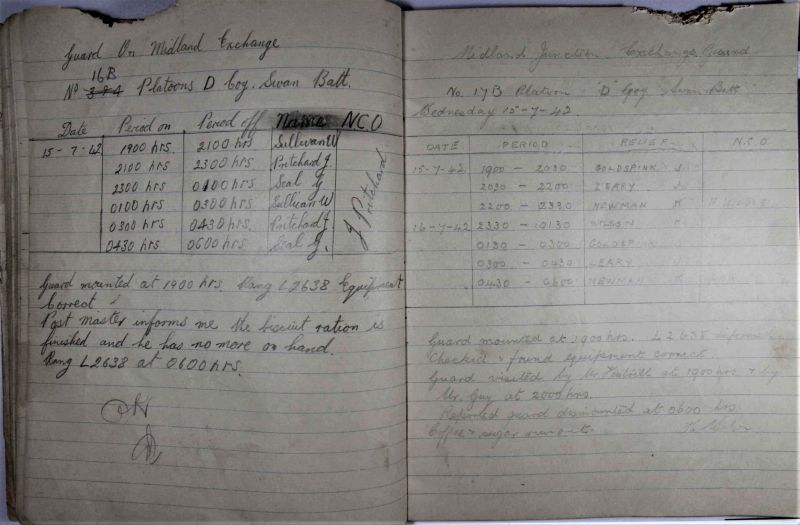 Guard On Midland Exchange
16B
No 384 Platoons D Coy. Swan Batt.
Date Period on Period off Name NCO
15-7-42 1900 hrs 2100 hrs Sullivan W
2100 hrs 2300 hrs Pritchard J.
2300 hrs 0100 hrs Seal G
0100 hrs 0300 hrs Sullivan W
0300 hrs 0430 hrs Pritchard J.
0430 hrs 0600 hrs Seal G.
J Pritchard
Guard mounted at 1900 hrs. Rang L2638 Equipment
Correct.
Post Master informs me the biscuit ration is
finished and he has no more on hand.
Rang L2638 at 0600 hrs.
Midland Junction Exchange Guard
No. 17B Platoon "D" Coy Swan Batt
Wednesday 15-7-42
DATE PERIOD RELIEF N.C.O
15-7-42 1900 - 2030 GOLDSPINK J
2030 - 2200 LEARY J
2200 - 2330 NEWMAN K
16-7-42 2330 - 0130 WILSON K
0130 - 0300 GOLDSPINK
0300 - 0430 LEARY J
0430 - 0600 NEWMAN K
Guard mounted at 1900 hrs. L2638 informed
Checked & found equipment correct.
Guard visited by Mr at 1900 hrs & by
Mr. Guy at 2000 hrs.
Reported guard dismounted at 0600 hrs.
Coffee & sugar run out.